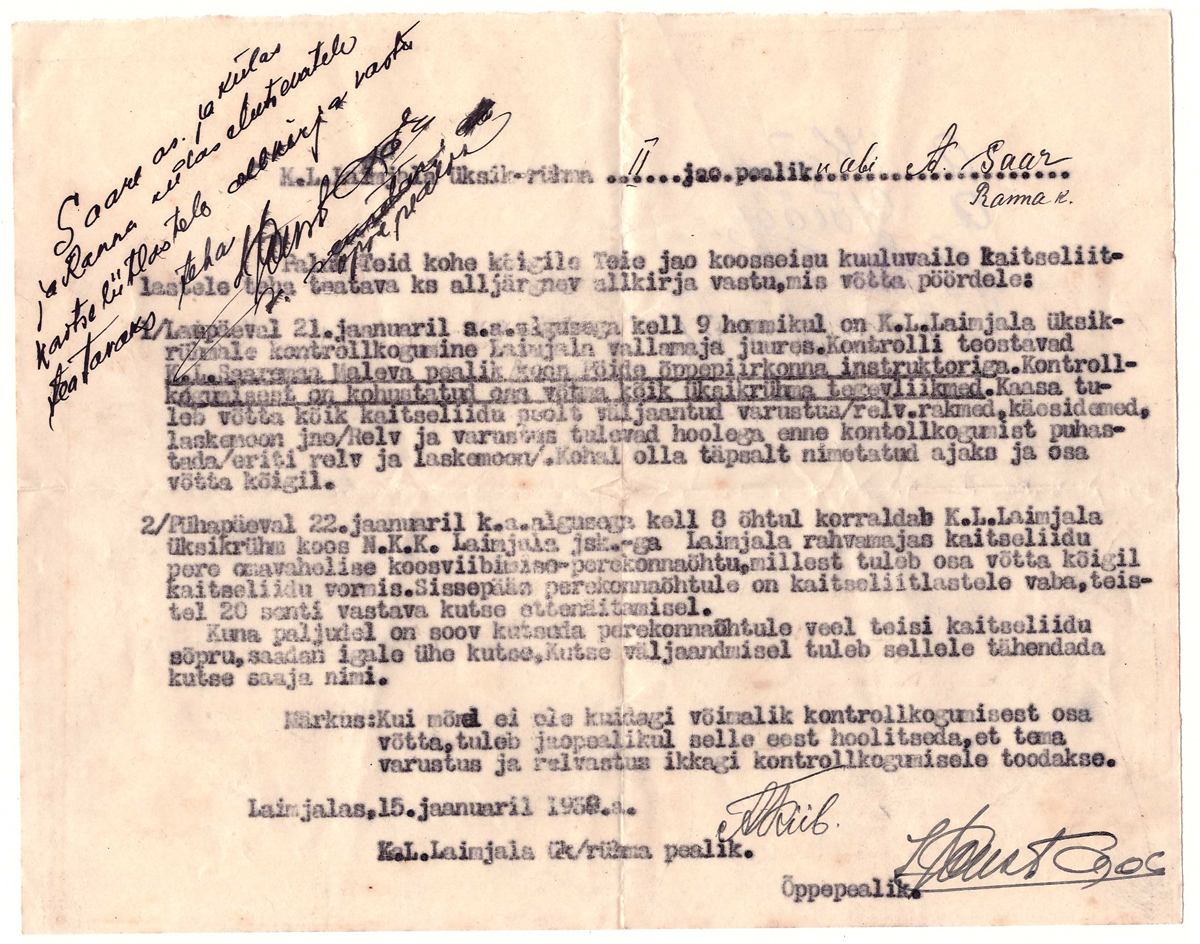 Saare as. ja külas
ja Ranna külas elutsevatele
kaitseliitlastele allkirja vastu
teatavaks teha
K.L.Laimjala üksik-rühma ..II...jao.pealikunabi A. Saar
Ranna k.
Palun Teid kohe kõigile Teie jao koosseisu kuuluvaile kaitseliit-
lastele teha teatava ks alljärgnev allkirja vastu,mis võtta pöördele:
1/Laupäeval 21.jaanuaril s.a.algusega kell 9 hommikul on K.L.Laimjala üksik-
rühmale kontrollkogumine Laimjala vallamaja juures.Kontrolli teostavad
K.L.Saaremaa Maleva pealik/koos Pöide õppepiirkonna instruktoriga.Kontroll-
kogumisest on kohustatud osa võtma kõik üksikrühma tegevliikmed.Kaasa tu-
leb võtta kõik kaitseliidu poolt väljaantud varustus/relv.rakmed,käesidemed,
laskemoon jne/Relv ja varustus tulevad hoolega enne kontollkogumist puhas-
tada/eriti relv ja laskemoon/.Kohal olla täpsalt nimetatud ajaks ja osa
võtta kõigil.
2/Pühapäeval 22.jaanuaril k.a.algusega kell 8 õhtul korraldab K.L.Laimjala
üksikrühm koos N.K.K. Laimjala jsk.-ga Laimjala rahvamajas kaitseliidu
pere omavahelise koosviibimise-perekonnaõhtu,millest tuleb osa võtta kõigil
kaitseliidu vormis.Sissepääs perekonnaõhtule on kaitseliitlastele vaba,teis-
tel 20 senti vastava kutse ettenäitamisel.
Kuna paljudel on soov kutsuda perekonnaõhtule veel teisi kaitseliidu
sõpru,saadan igale ühe kutse,Kutse väljaandmisel tuleb sellele tähendada
kutse saaja nimi.
Märkus:Kui mõnel ei ole kuidagi võimalik kontrollkogumisest osa
võtta,tuleb jaopealikul selle eest hoolitseda,et tema
varustus ja relvastus ikkagi kontrollkogumisele toodakse.
Laimjalas,15.jaanuaril 1939.a.
K.L.Laimjala ük/rühma pealik.
Õppepealik.